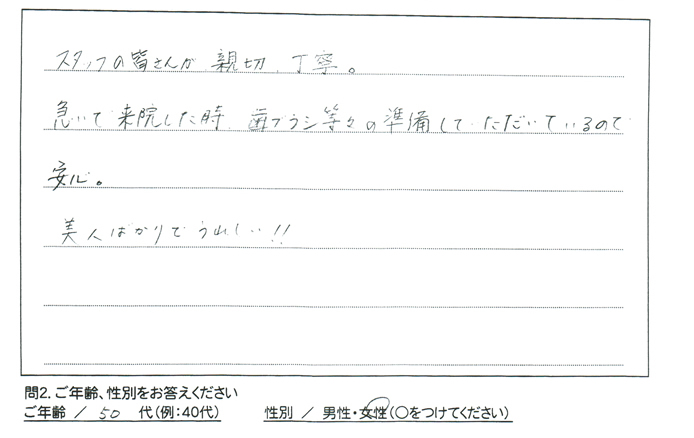 スタッフの皆さんが、親切、丁寧。
急いで来院した時、歯ブラシ等々の準備していただいているので
安心。
美人ばかりでうれしい!!
問2. ご年齢、性別をお答えください
ご年齢 / 50 代(例:40代) 性別 / 男性・女性(○をつけてください)